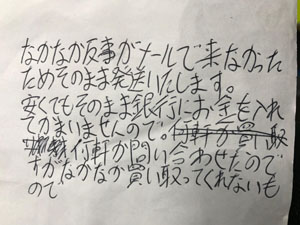 なかなか返事がメールで来なかった
ためそのまま発送いたします。
安くてもそのまま銀行にお金を入れ
てかまいませんので。何軒か買取
何軒か問い合わせたので
すがなかなか買い取ってくれないも
ので